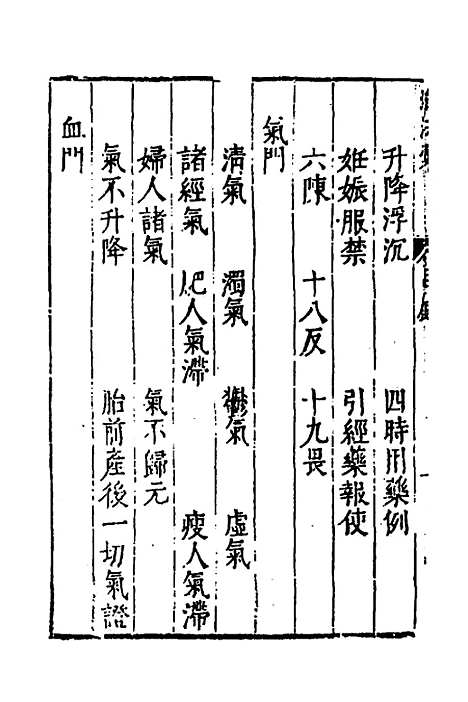 升降浮沉　四時用藥例
妊娠服禁　引經藥報使
六陳　十八反　十九畏
氣門
清氣　濁氣　鬱氣　虛氣
諸經氣　肥人氣滯　瘦人氣滯
婦人諸氣　氣不歸元
氣不升降　胎前產後一切氣證
血門